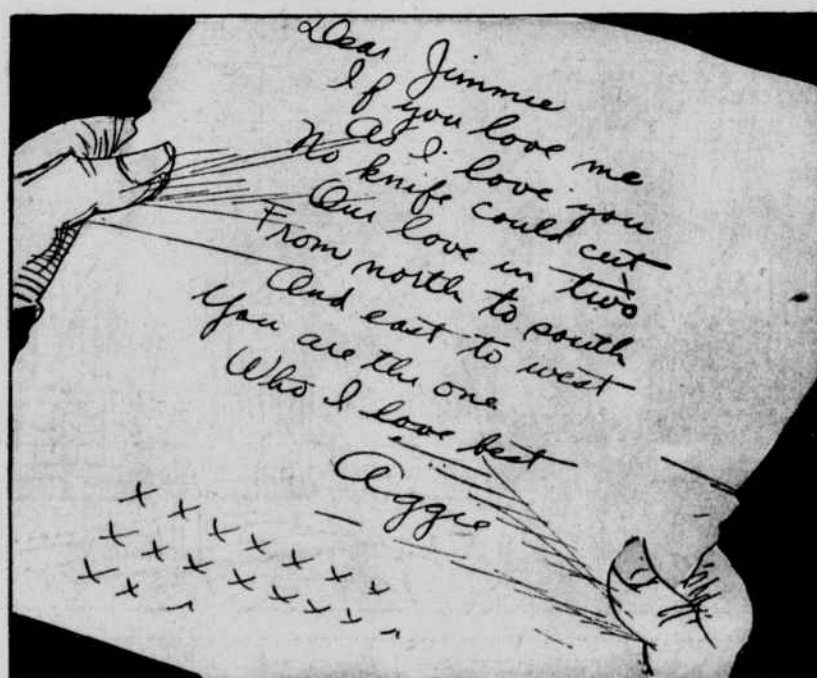 Dear Jimmie
If you love me
As I love you
No knife could cut
Our love in two
From north to south
And east to west
You are the one
Who I love best
Aggie
x x x x x x x
x x x x x x x
x x